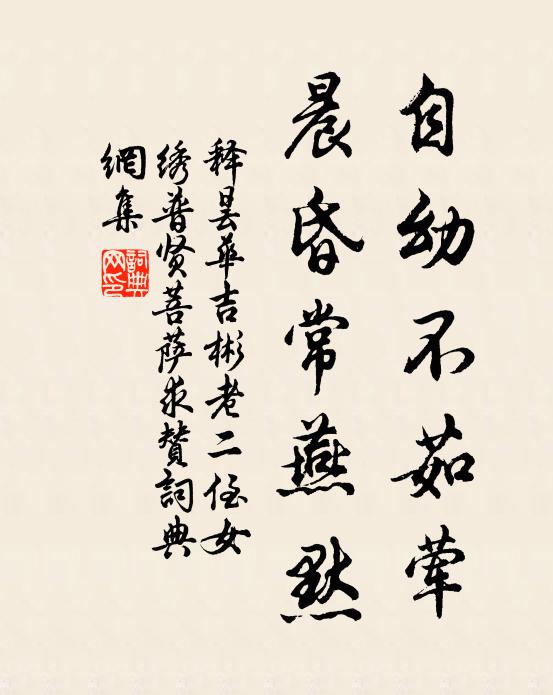 自幼不茹荤
晨昏常燕默
释昙华吉彬老二侄女
绣普贤菩萨求赞词典
網集
詞典網印